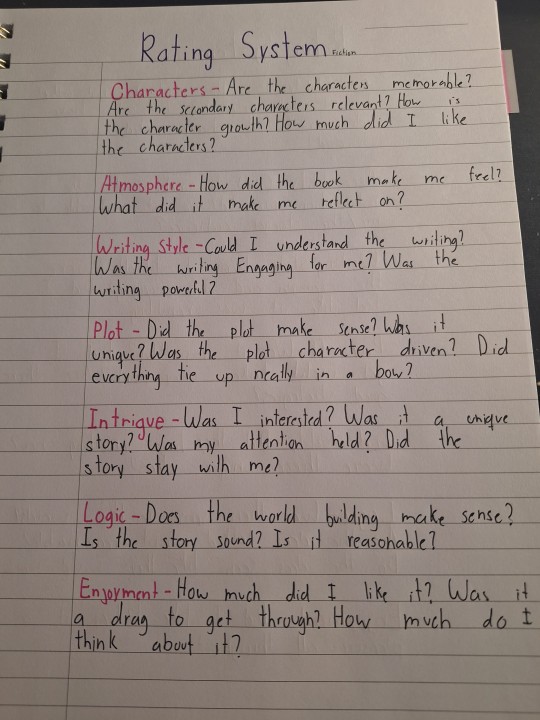 Rating System Fiction
Characters - Are the characters memorable?
Are the secondary characters relevant? How is
the character growth? How much did I like
the characters?
Atmosphere - How did the book make me feel?
What did it make me reflect on?
Writing Style - Could I understand the writing?
Was the writing Engaging for me? Was the
writing powerful?
Plot - Did the plot make sense? Was it
unique? Was the plot character driven? Did
everything tie up neally in a bow?
Intrigue - Was I interested? Was it a unique
story? Was my attention held? Did the
story stay with me?
Logic - Does the world building make sense?
Is the story sound? Is it reasonable?
Enjoyment - How much did I like it? Was it
a drag to get through? How much do I
think about it?